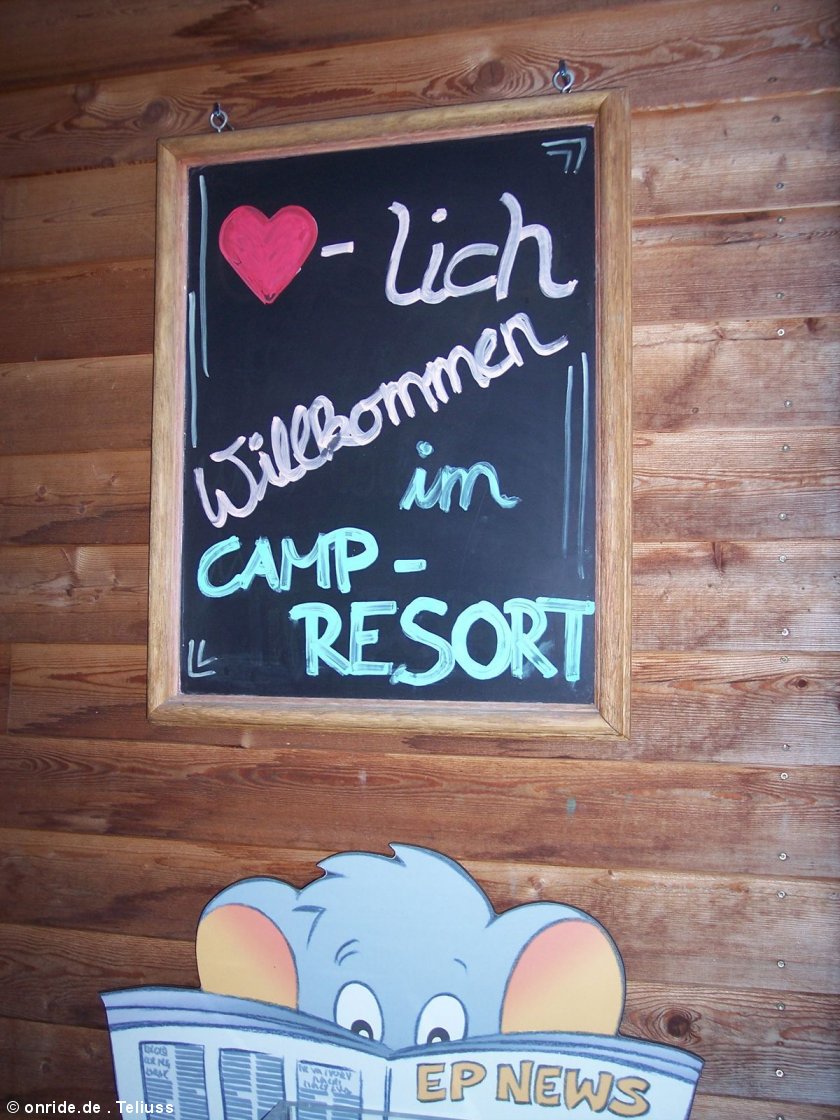 ❤-lich
Willkommen
im
CAMP-
RESORT
EP NEWS
© onride.de . Teliuss